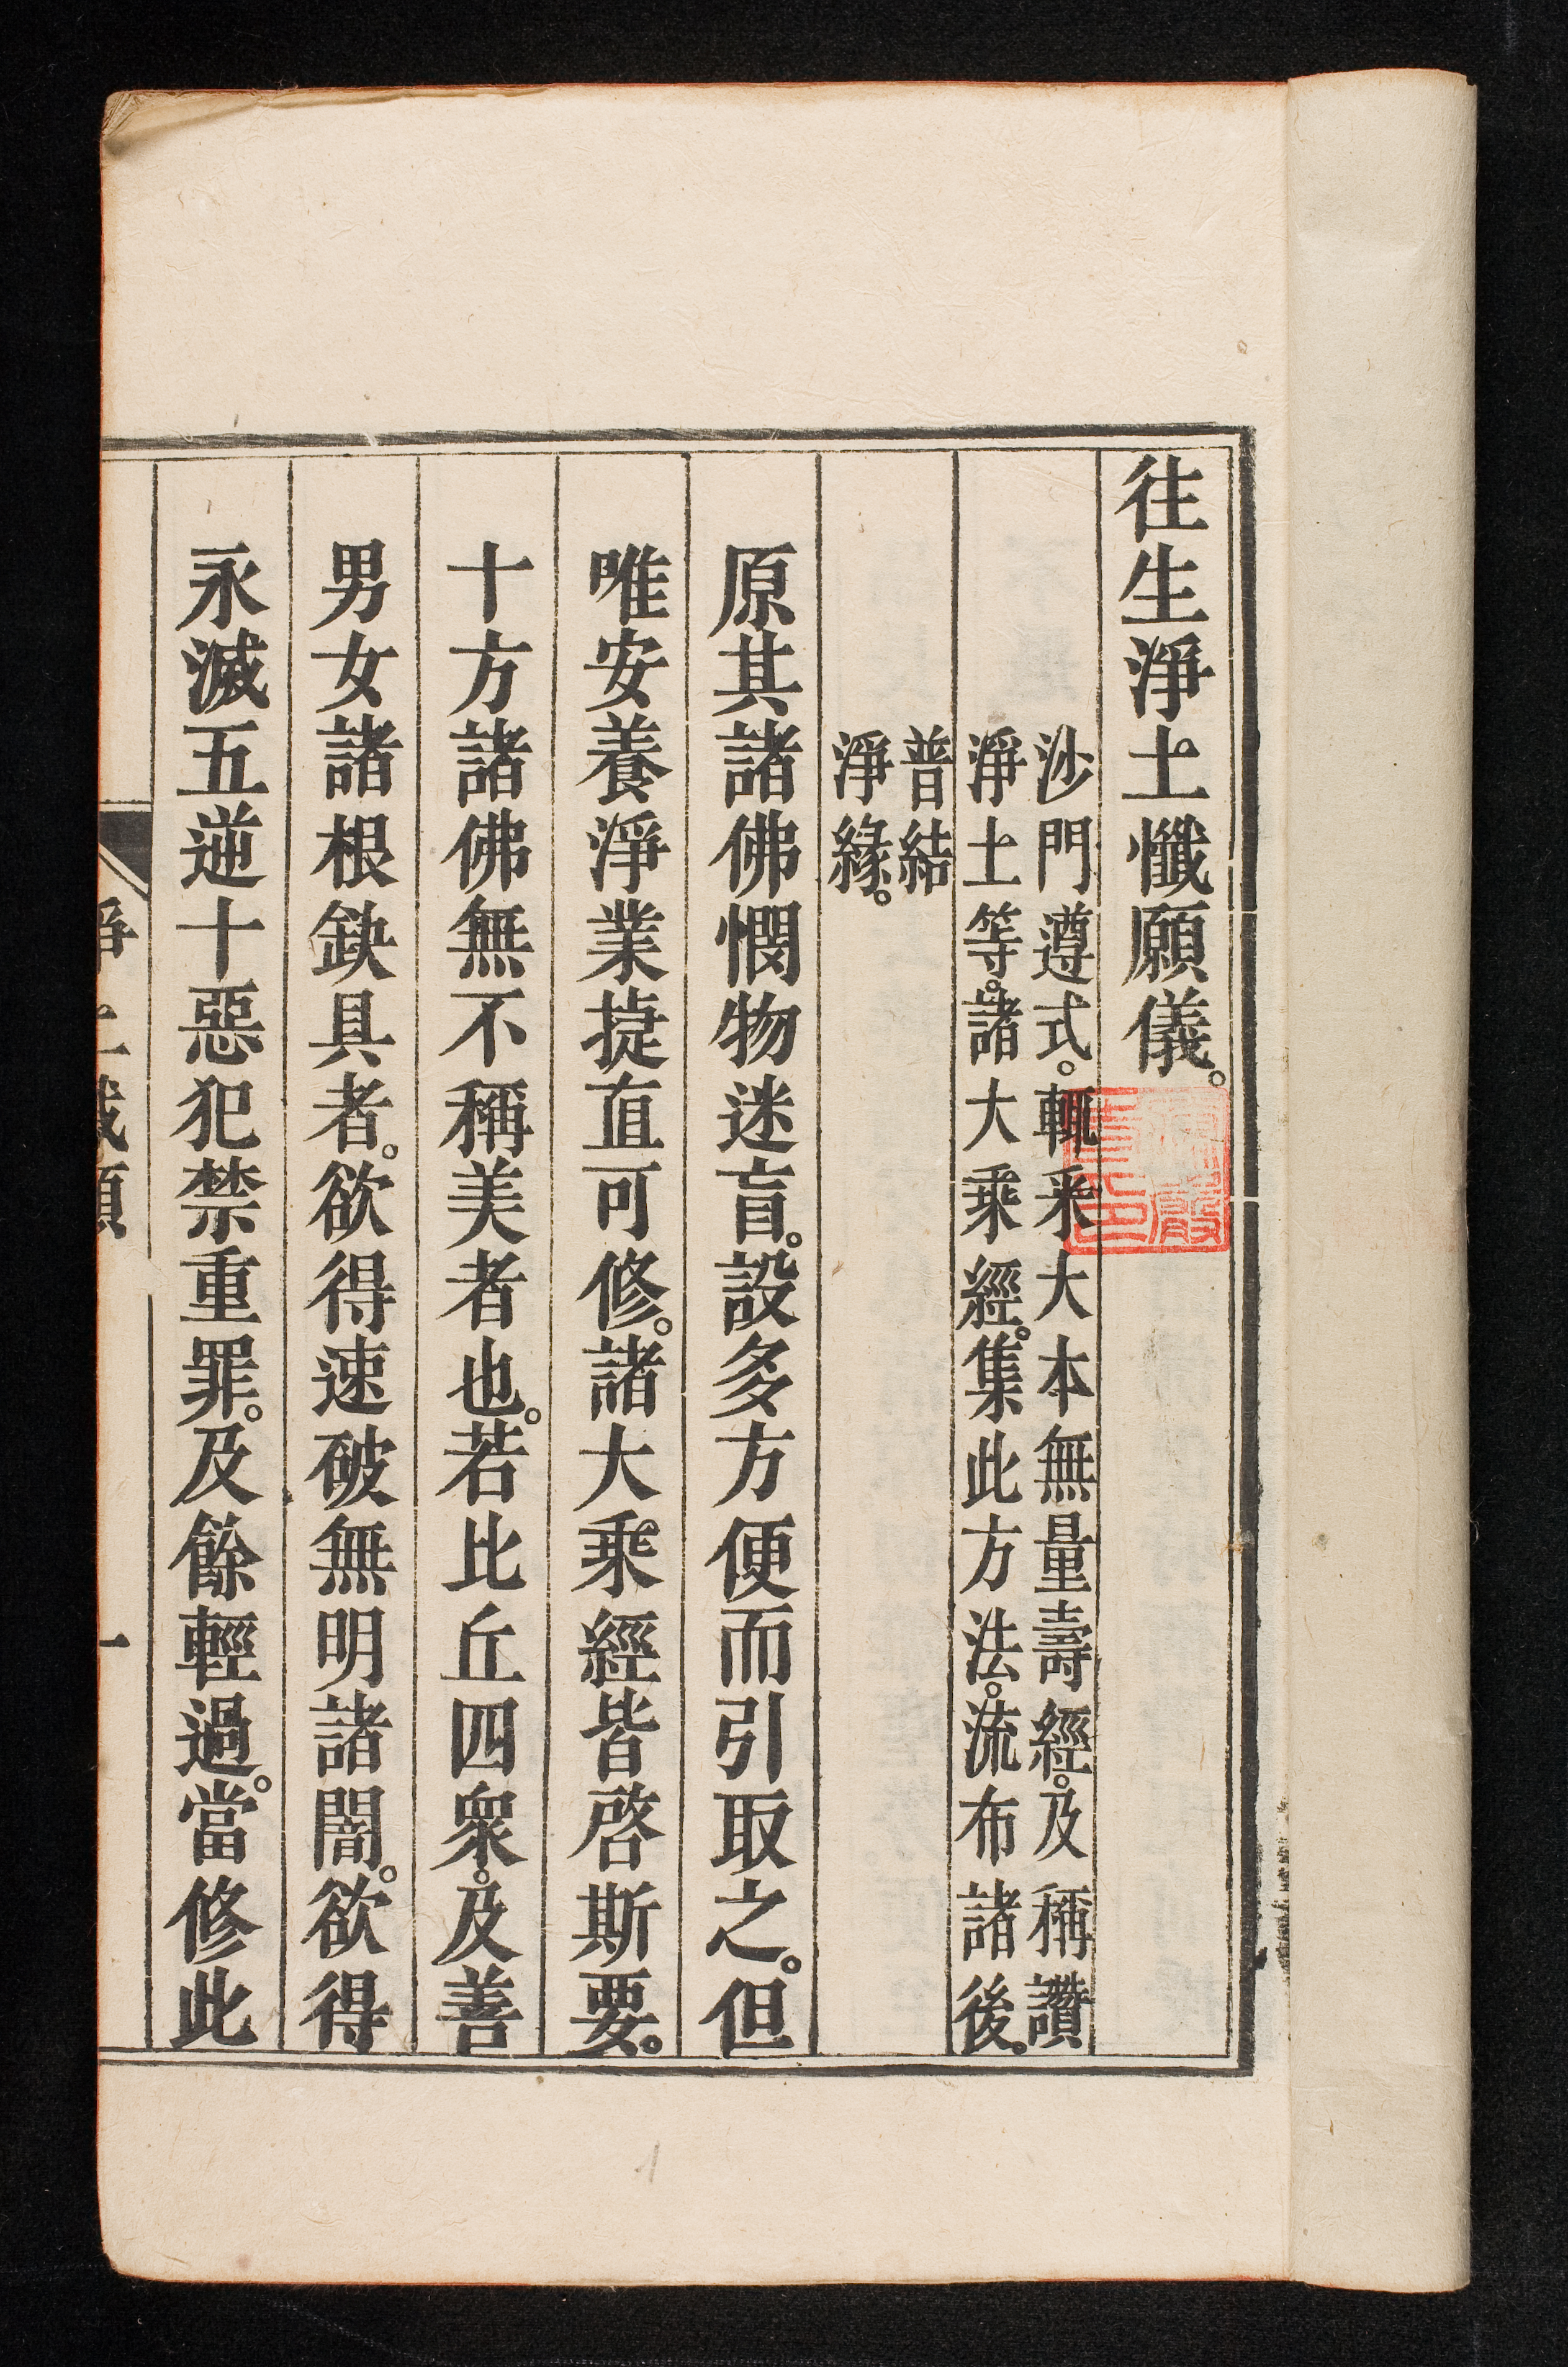 往生淨土懺願儀。
沙門遵式。輒采大本無量壽經。及稱讚
淨土等。諸大乘經。集此方法。流布諸後。
普結
淨緣。
原其諸佛憫物迷盲。設多方便而引取之。但
唯安養淨業捷直可修。諸大乘經皆啓斯要。
十方諸佛無不稱美者也。若比丘四衆。及善
男女諸根缺具者。欲得速破無明諸闇。欲得
永滅五逆十惡犯禁重罪。及餘輕過。當修此
淨土懺願
一